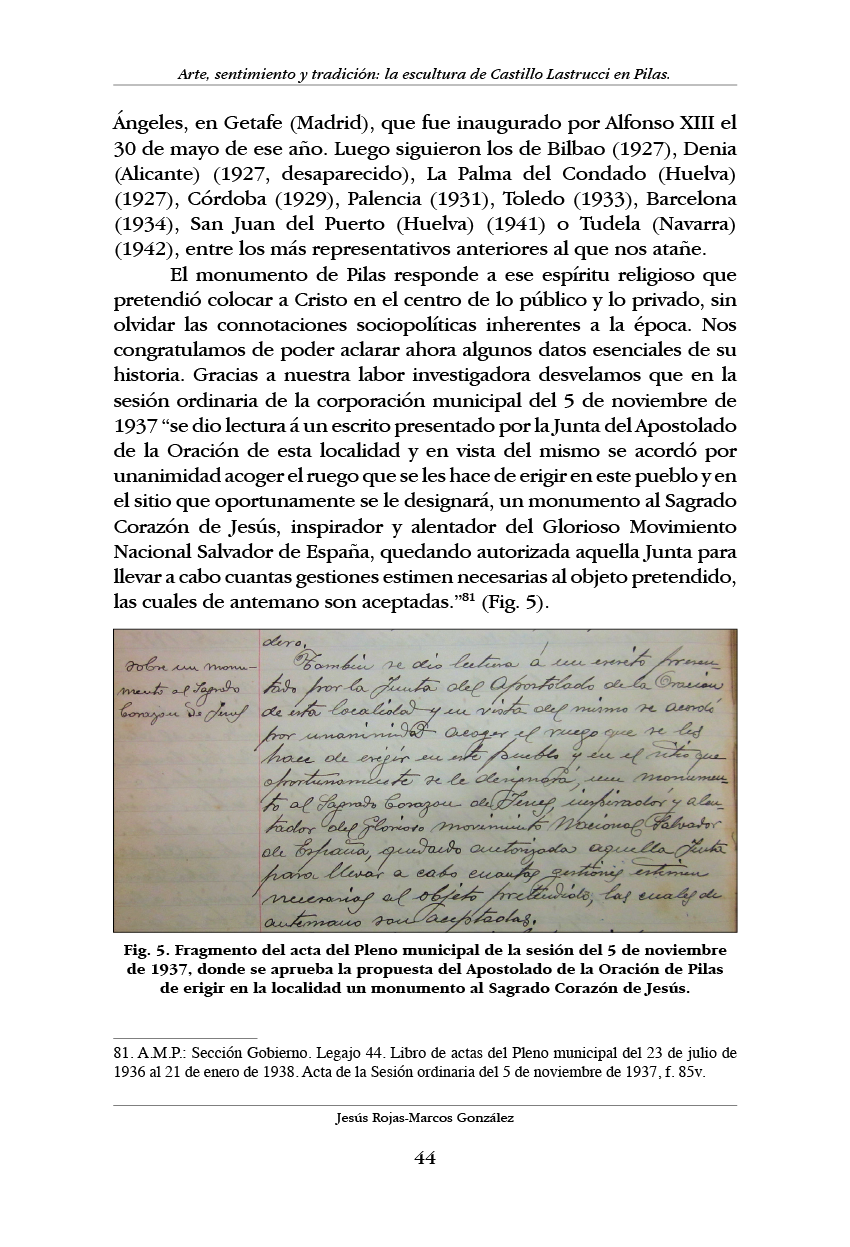 Arte, sentimiento y tradición: la escultura de Castillo Lastrucci en Pilas.
Ángeles, en Getafe (Madrid), que fue inaugurado por Alfonso XIII el
30 de mayo de ese año. Luego siguieron los de Bilbao (1927), Denia
(Alicante) (1927, desaparecido), La Palma del Condado (Huelva)
(1927), Córdoba (1929), Palencia (1931), Toledo (1933), Barcelona
(1934), San Juan del Puerto (Huelva) (1941) o Tudela (Navarra)
(1942), entre los más representativos anteriores al que nos atañe.
El monumento de Pilas responde a ese espíritu religioso que
pretendió colocar a Cristo en el centro de lo público y lo privado, sin
olvidar las connotaciones sociopolíticas inherentes a la época. Nos
congratulamos de poder aclarar ahora algunos datos esenciales de su
historia. Gracias a nuestra labor investigadora desvelamos que en la
sesión ordinaria de la corporación municipal del 5 de noviembre de
1937 “se dio lectura á un escrito presentado por la Junta del Apostolado
de la Oración de esta localidad y en vista del mismo se acordó por
unanimidad acoger el ruego que se les hace de erigir en este pueblo y en
el sitio que oportunamente se le designará, un monumento al Sagrado
Corazón de Jesús, inspirador y alentador del Glorioso Movimiento
Nacional Salvador de España, quedando autorizada aquella Junta para
llevar a cabo cuantas gestiones estimen necesarias al objeto pretendido,
las cuales de antemano son aceptadas.”81 (Fig. 5).
sobre un monu-
mento al Sagrado
Corazon de Jesus
dero.
Tambien se dio lectura á un escrito presen-
tado por la Junta del Apostolado de la Oracion
de esta localidad y en vista del mismo se acordó
por unanimidad acoger el ruego que se les
hace de erigir en este pueblo y en el sitio que
oportunamente se le designará, un monumen-
to al Sagrado Corazon de Jesus, inspirador y alen-
tador del Glorioso movimiento Nacional Salvador
de España, quedando autorizada aquella Junta
para llevar a cabo cuantas gestiones estimen
necesarias al objeto pretendido, las cuales de
antemano son aceptadas.
Fig. 5. Fragmento del acta del Pleno municipal de la sesión del 5 de noviembre
de 1937, donde se aprueba la propuesta del Apostolado de la Oración de Pilas
de erigir en la localidad un monumento al Sagrado Corazón de Jesús.
81. A.M.P.: Sección Gobierno. Legajo 44. Libro de actas del Pleno municipal del 23 de julio de
1936 al 21 de enero de 1938. Acta de la Sesión ordinaria del 5 de noviembre de 1937, f. 85v.
Jesús Rojas-Marcos González
44